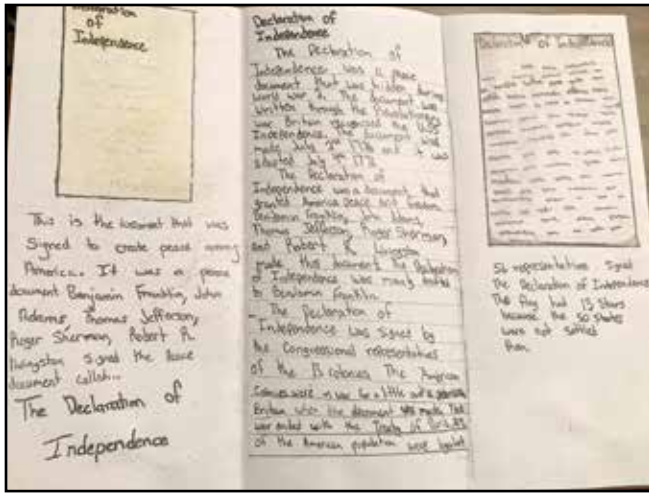 Declaration
of
Independence
This is the document that was
signed to create peace among
America. It was a peace
document Benjamin Franklin, John
Adams, Thomas Jefferson,
Roger Sherman, Robert R.
Livingston signed the peace
document callsh...
The Declaration of
Independence
Declaration of
Independence
The Declaration of
Independence was a peace
document that was hidden during
world war 2. The document was
written through the Revolutionary
war. Britain recognized the
Independence. The document was
made July 2nd 1776 and it was
July 3rd 1776
The Declaration of
Independence was a document that
granted America peace and freedom
Benjamin Franklin, John Adams,
Thomas Jefferson, Roger Sherman,
and Robert R. Livingston
made this document. The Declaration
of Independence was
to Benjamin Franklin.
The Declaration of
Independence was signed by
the Congressional representatives
of the 13 colonies. The American
Colonies were in war for a little
Britain when the document was made. The
war ended with the Treaty of Paris.
of the American population were
Declaration of Independence
56 representatives signed
The Declaration of Independence
The flag had 13 stars
because the 50 states
were not settled
then.